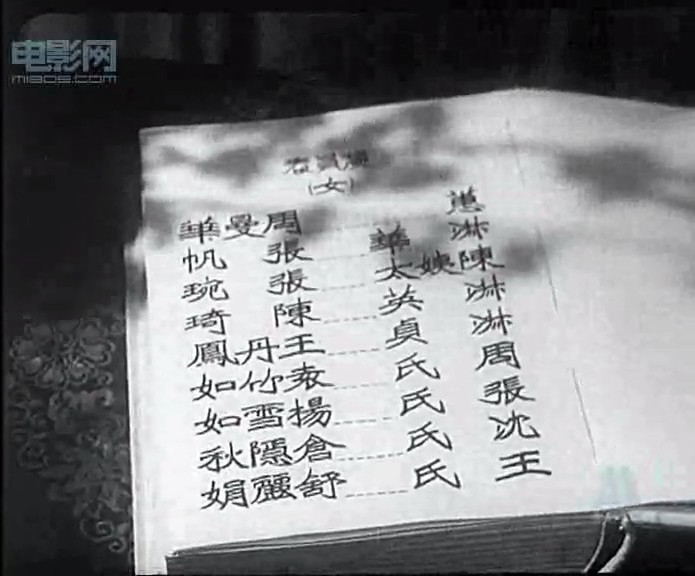 电影网
m1905.com
演員表
(女)
蕙 周曼華
淋華 張帆
陳姨太 張琬
淋英 陳琦
淋貞 王丹鳳
周氏 袁竹如
張氏 揚雪如
沈氏 倉隱秋
王氏 舒麗娟